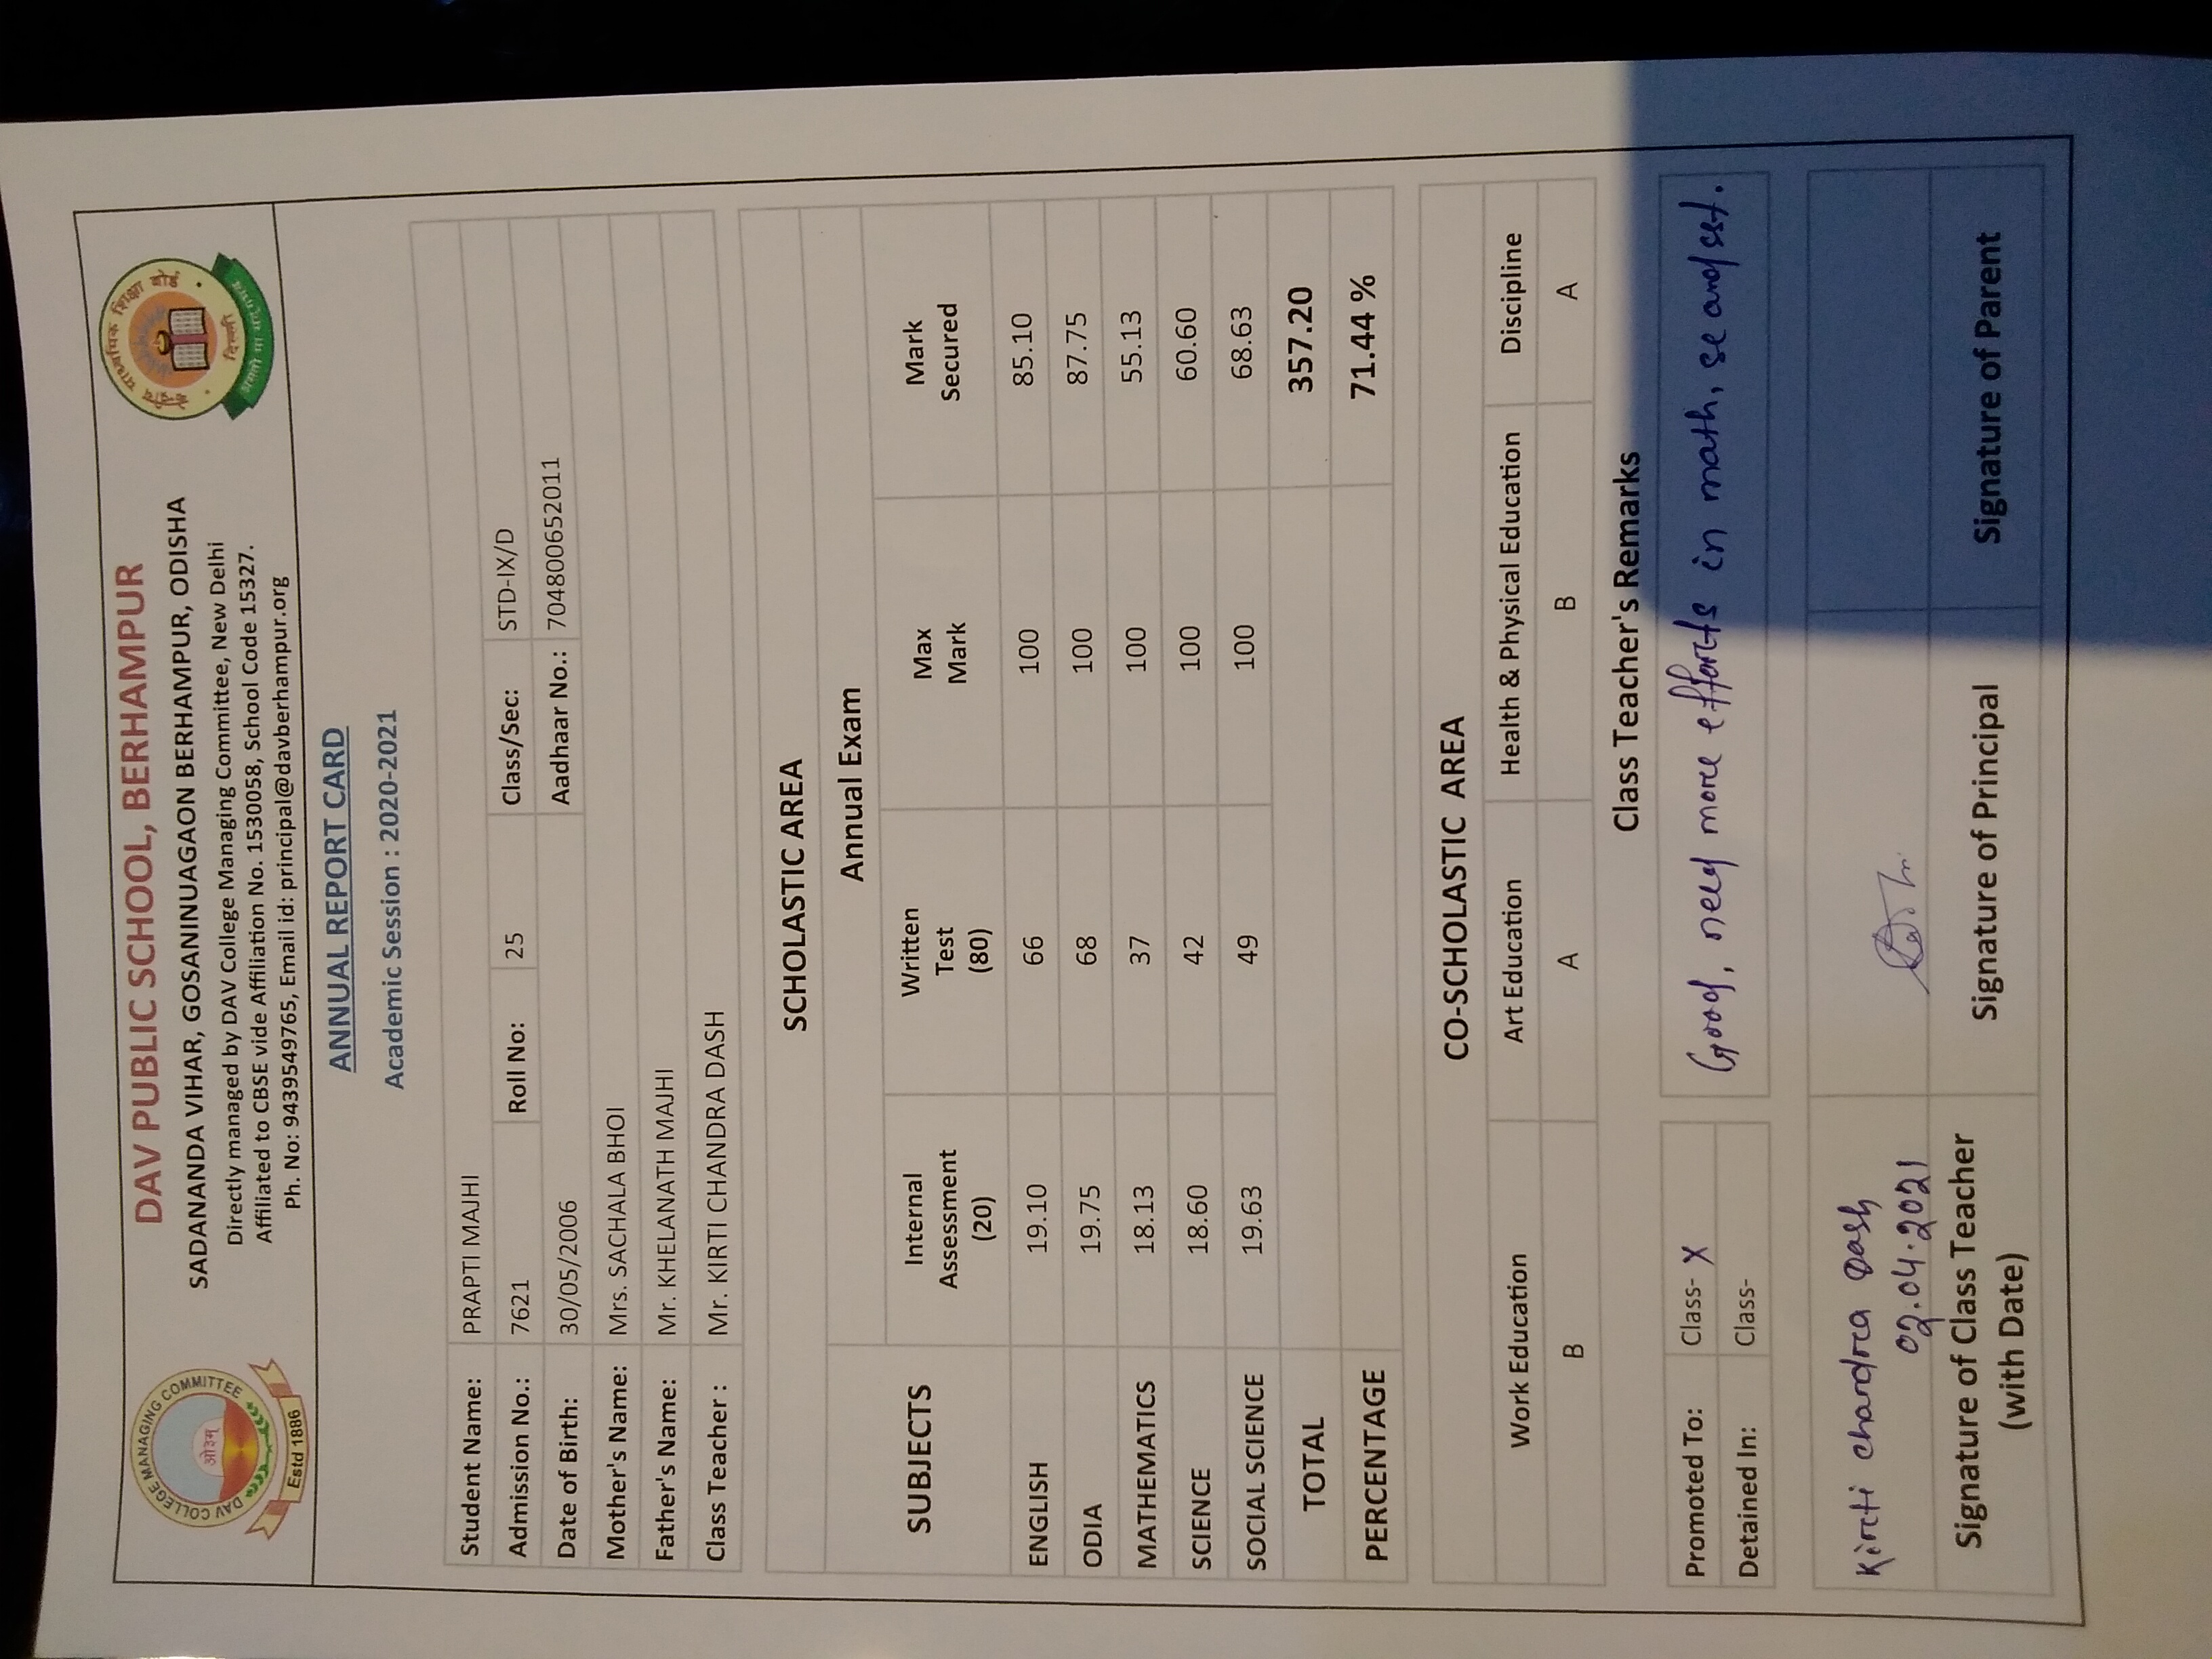 DAV COLLEGE MANAGING COMMITTEE
ओ३म्
Estd 1886
DAV PUBLIC SCHOOL, BERHAMPUR
SADANANDA VIHAR, GOSANINUAGAON BERHAMPUR, ODISHA
Directly managed by DAV College Managing Committee, New Delhi
Affiliated to CBSE vide Affiliation No. 1530058, School Code 15327.
Ph. No: 9439549765, Email id: principal@davberhampur.org
ANNUAL REPORT CARD
Academic Session : 2020-2021
Student Name: PRAPTI MAJHI
Admission No.: 7621 Roll No: 25 Class/Sec: STD-IX/D
Date of Birth: 30/05/2006 Aadhaar No.: 704800652011
Mother's Name: Mrs. SACHALA BHOI
Father's Name: Mr. KHELANATH MAJHI
Class Teacher : Mr. KIRTI CHANDRA DASH
SCHOLASTIC AREA
Annual Exam
SUBJECTS Internal Assessment (20) Written Test (80) Max Mark Mark Secured
ENGLISH 19.10 66 100 85.10
ODIA 19.75 68 100 87.75
MATHEMATICS 18.13 37 100 55.13
SCIENCE 18.60 42 100 60.60
SOCIAL SCIENCE 19.63 49 100 68.63
TOTAL 357.20
PERCENTAGE 71.44 %
CO-SCHOLASTIC AREA
Work Education Art Education Health & Physical Education Discipline
B A B A
Class Teacher's Remarks
Promoted To: Class- X
Detained In: Class-
Good, need more efforts in math, sc and sst.
Kirti chandra Dash
02.04.2021
Signature of Class Teacher
(with Date)
Signature of Principal
Signature of Parent